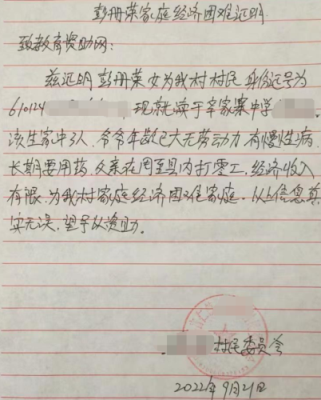 彭册荣家庭经济困难证明
致教育资助网:
兹证明彭册荣女为我村村民 身份证号为
610124 现就读于辛家寨中学 .
该生家中3人,爷爷年龄已大无劳动力有慢性病,
长期要用药,父亲在周至县内打零工,经济收入
有限,为我村家庭经济困难家庭。以上信息真
实无误,望予以资助。
村民委员会
2022年9月21日